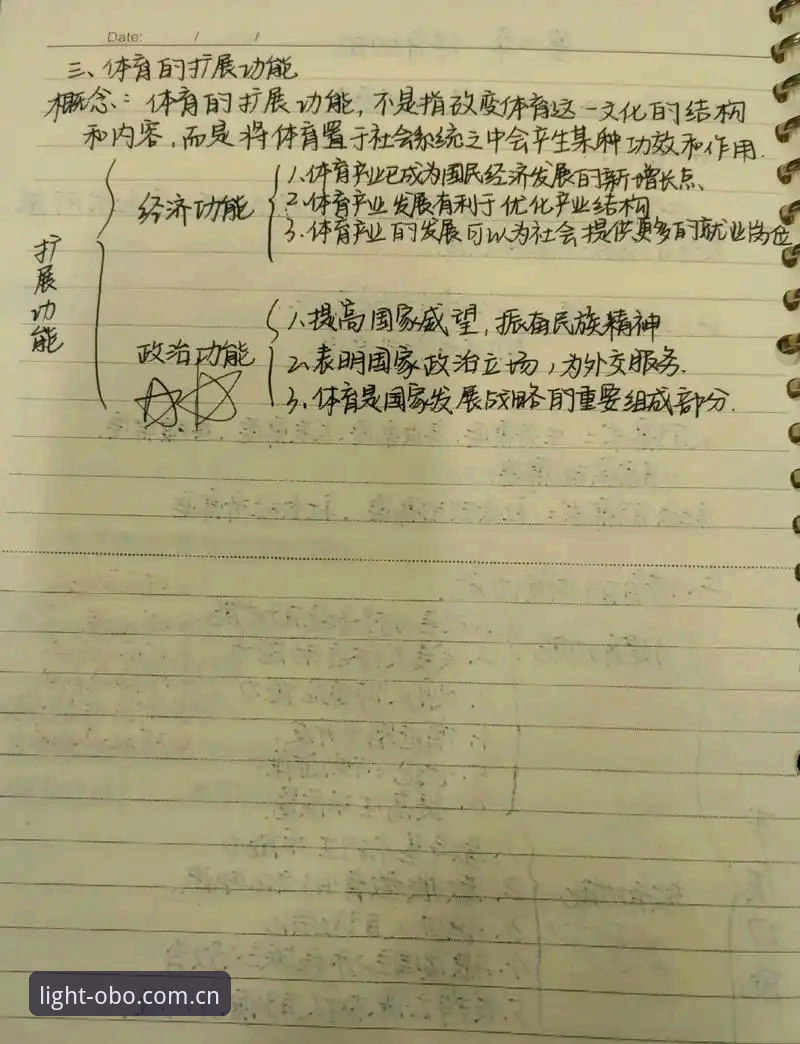 Date: / /
三、体育的扩展功能
概念：体育的扩展功能，不是指改变体育这一文化的结构
和内容，而是将体育置于社会系统之中会产生某种功效和作用.
扩展功能
经济功能
1.体育产业已成为国民经济发展的新增长点、
2.体育产业发展有利于优化产业结构
3.体育产业的发展可以为社会提供更多的就业岗位
政治功能
1.提高国家威望，振奋民族精神
2.表明国家政治立场，为外交服务.
3.体育是国家发展战略的重要组成部分.
light-obo.com.cn